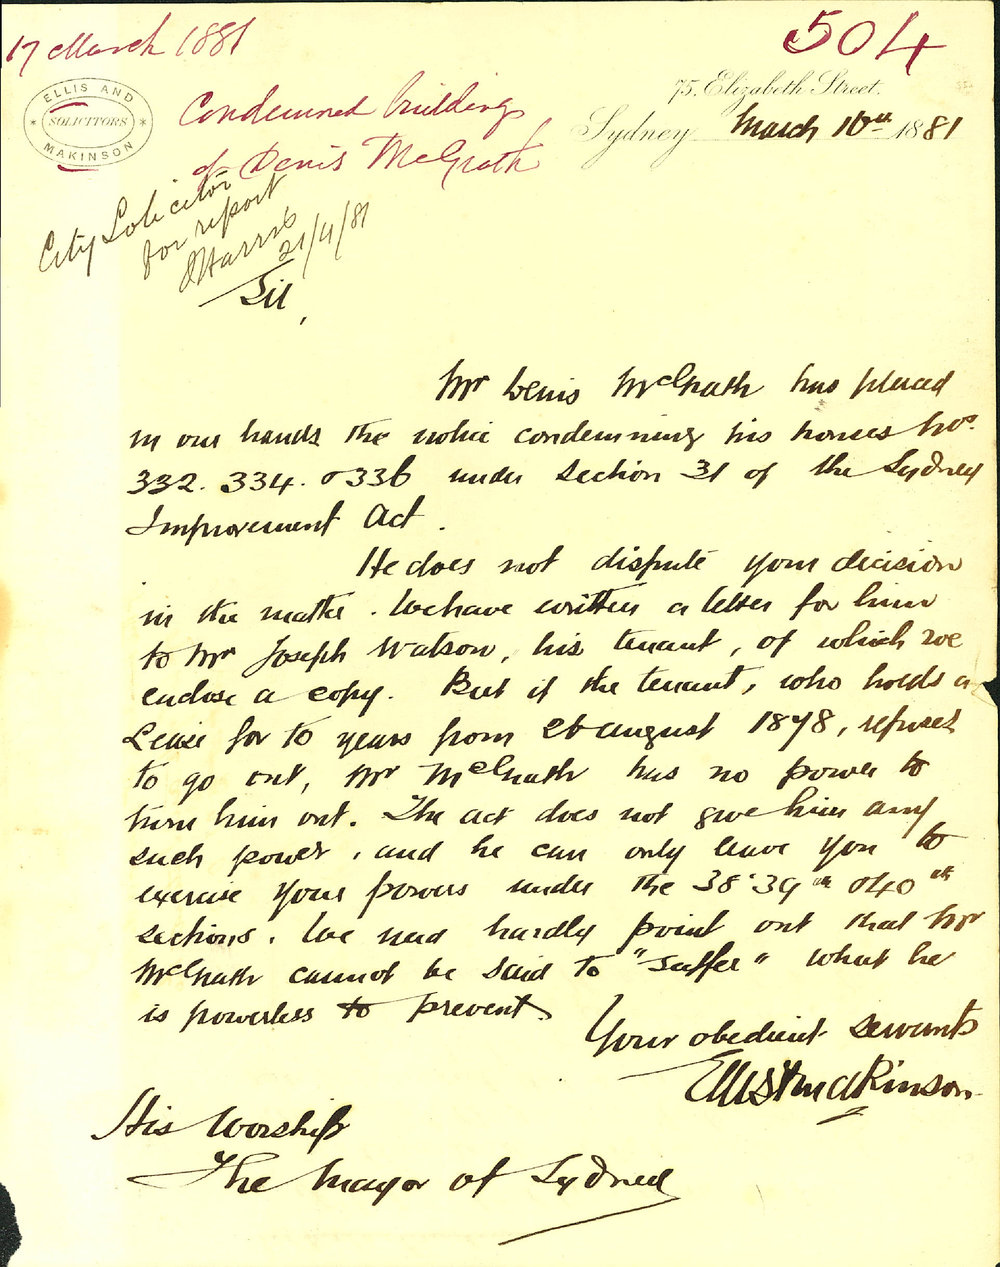 17 March 1881
504
ELLIS AND
SOLICITORS
MAKINSON
75, Elizabeth Street,
Sydney March 10th 1881
Condemned buildings
of Denis McGrath
City Solicitor
for report
21/4/81
Sir,
Mr Denis McGrath has placed
in our hands the notice condemning his houses Nos.
332. 334. & 336 under section 31 of the Sydney
Improvement Act.
He does not dispute your decision
in the matter. We have written a letter for him
to Mr Joseph Watson, his tenant, of which we
enclose a copy. But if the tenant, who holds a
Lease for 10 years from 26 August 1878, refuses
to go out, Mr McGrath has no power to
turn him out. The act does not give him any
such power, and he can only leave you to
exercise your powers under the 38. 39th & 40th
sections. We need hardly point out that Mr
McGrath cannot be said to "suffer" what he
is powerless to prevent.
Your obedient servants
Ellis & Makinson
His Worship
The Mayor of Sydney